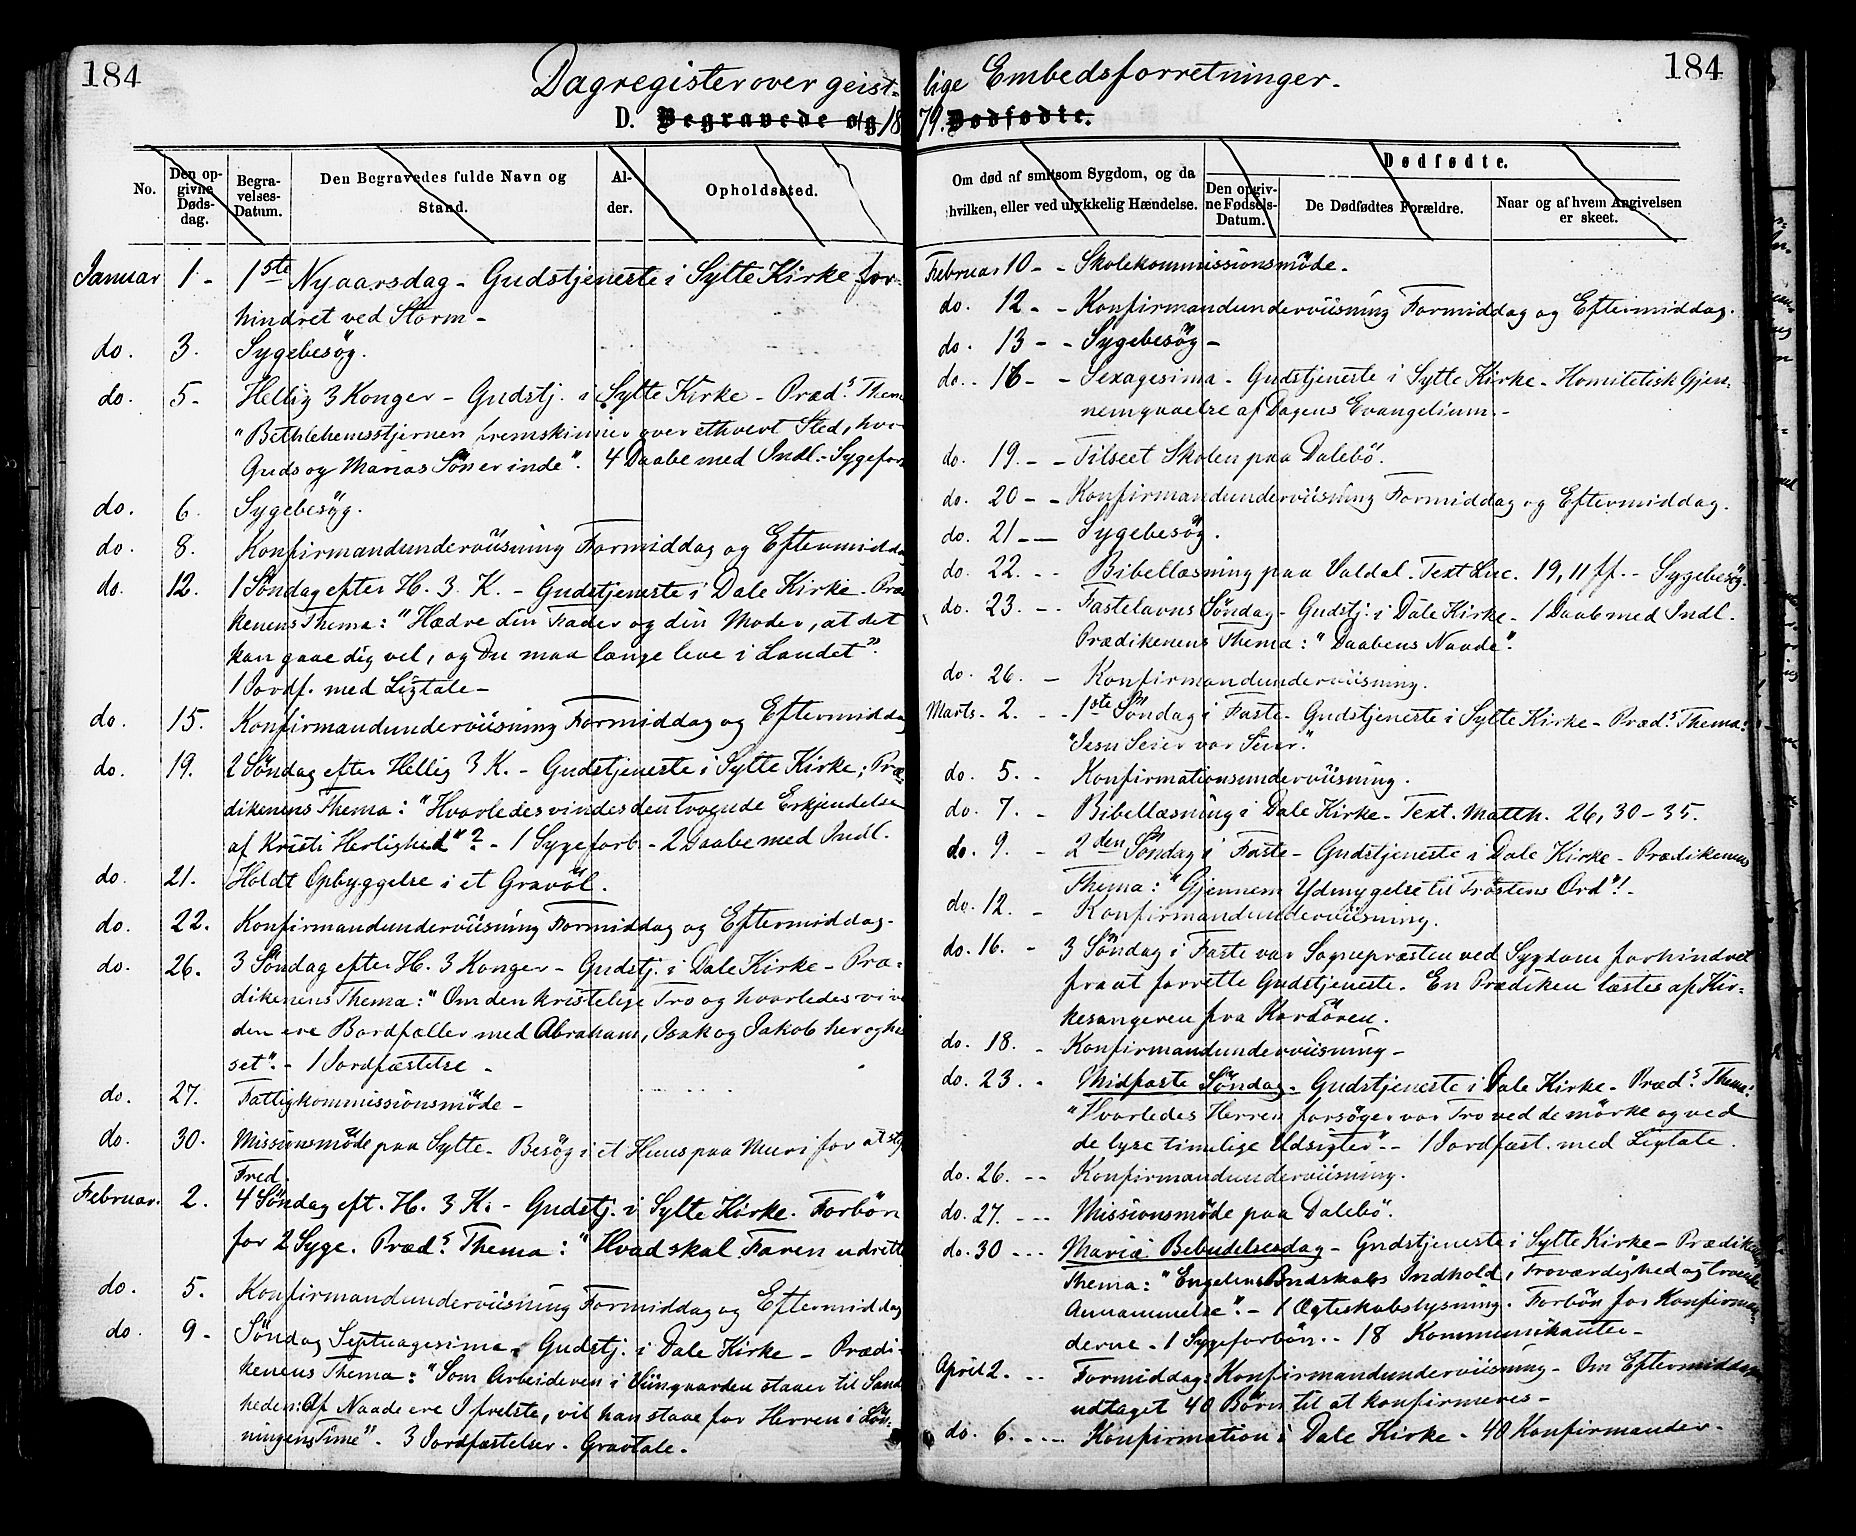 184
Dagregister over geist-
D. Begravede og 18
No.
Den op-
givne
Døds-
dag.
Begra-
velses-
Datum.
Den Begravedes fulde Navn og
Stand.
Al-
der.
Opholdssted.
Januar 1 - 1ste Nyaarsdag - Gudstjeneste i Sylte Kirke for-
hindret ved Storm -
do. 3. Sygebesøg.
do. 5. Hellig 3 Konger - Gudstj. i Sylte Kirke - Præd.s Thema
"Bethlehemsstjernen fremskinner over ethvert Sted, hvor
Guds og Marias Søn er inde". 4 Daabe med Indl. - Sygeforb
do. 6. Sygebesøg.
do. 8. Konfirmandunderviisning Formiddag og Eftermiddag
do. 12. 1 Søndag efter H. 3. K. - Gudstjeneste i Dale Kirke - Præ
kenens Thema: "Hædre din Fader og din Moder, at det
kan gaae dig vel, og Du maa længe leve i Landet".
1 Jordf. med Ligtale -
do. 15. Konfirmandunderviisning Formiddag og Eftermiddag
do. 19. 2 Søndag efter Hellig 3 K. - Gudstjeneste i Sylte Kirke; Præ-
dikenens Thema: "Hvorledes vindes den troende Erkjendelse
af Kristi Herlighed"? - 1 Sygeforb. - 2 Daabe med Indl.
do. 21. Holdt Opbyggelse i et Gravøl.
do. 22. Konfirmandunderviisning Formiddag og Eftermiddag -
do. 26. 3 Søndag efter H. 3 Konger - Gudstj. i Dale Kirke - Præ-
dikenens Thema: "Om den kristelige Tro og hvorledes vi ve
den ere Bordfæller med Abraham, Isak og Jakob her og his
set". - 1 Jordfæstelse -
do. 27. Fattigkommissionsmøde -
do. 30. Missionsmøde paa Sylte - Besøg i et Huus paa Muri for at sti
Fred.
Februar. 2. 4 Søndag eft. H. 3 K. - Gudstj. i Sylte Kirke. Forbøn
for 2 Syge. Præd.s Thema: "Hvad skal Faren udrette
do. 5. Konfirmandunderviisning Formiddag og Eftermiddag
do. 9 - Søndag Septuagesima. Gudstj. i Dale Kirke - Prædi-
kenens Thema: "Som Arbeideren i Viingaarden staaer til Sand
heden: Af Naade ere I frelste, vil han staae for Herren i Løn-
ningens Time". 3 Jordfæstelser - Gravtale.
184
lige Embedsforretninger.
79. Dødfødte.
Om død af smitsom Sygdom, og da
hvilken, eller ved ulykkelig Hændelse.
Dødfødte.
Den opgiv-
ne Fødsels-
Datum.
De Dødfødtes Forældre.
Naar og af hvem Angivelsen
er skeet.
Februar 10 - - Skolekommissionsmøde -
do. 12 - - Konfirmandunderviisning Formiddag og Eftermiddag.
do. 13 - - Sygebesøg -
do. - 16 - - Sexagesima - Gudstjeneste i Sylte Kirke - Homiletisk Gjen-
nemgaaelse af Dagens Evangelium -
do. 19. - - Tilseet Skolen paa Dalebø.
do. 20 - - Konfirmandunderviisning Formiddag og Eftermiddag.
do. 21 - - Sygebesøg.
do. 22. - - Bibellæsning paa Valdal. Text Luc. 19, 11 ff. - Sygebesøg.
do. 23. - - Fastelavns Søndag - Gudstj. i Dale Kirke - 1 Daab med Indl.
Prædikenens Thema: "Daabens Naade".
do. 26. - Konfirmandunderviisning.
Marts - 2. - - 1ste Søndag i Faste - Gudstjeneste i Sylte Kirke - Præd.s Thema:
"Jesu Seier vor Seier."
do. 5. - Konfirmationsunderviisning.
do. 7. - Bibellæsning i Dale Kirke - Text. Matth. 26, 30 - 35.
do. 9. - 2den Søndag i Faste - Gudstjeneste i Dale Kirke - Prædikenens
Thema: "Gjennem Ydmygelse til Trøstens Ord"! -
do. 12. - Konfirmandunderviisning.
do. 16. - 3 Søndag i Faste var Sognepræsten ved Sygdom forhindret
fra at forrette Gudstjeneste. En Prædiken læstes af Kir-
kesangeren fra Kordøren.
do. 18. - Konfirmandunderviisning -
do. 23. - Midfaste Søndag - Gudstjeneste i Dale Kirke - Præd.s Thema:
"Hvorledes Herren forsøger vor Tro ved de mørke og ved
de lyse timelige Udsigter" - - 1 Jordfæst. med Ligtale.
do. 26. - - Konfirmandunderviisning.
do. 27. - - - Missionsmøde paa Dalebø.
do. 30 - - - Mariæ Bebudelsesdag - Gudstjeneste i Sylte Kirke - Prædikenens
Thema: "Engelens Budskabs Indhold, Troværdighed og troende
Annammelse". - 1 Ægteskabslysning. Forbøn for Konfirman
derne - 1 Sygeforbøn. - 18 Kommunikanter -
April 2. - - Formiddag: Konfirmandunderviisning - Om Eftermiddagen
udtaget 40 Børn til at konfirmeres -
do. 6. - - - Konfirmation i Dale Kirke - 40 Konfirmander -